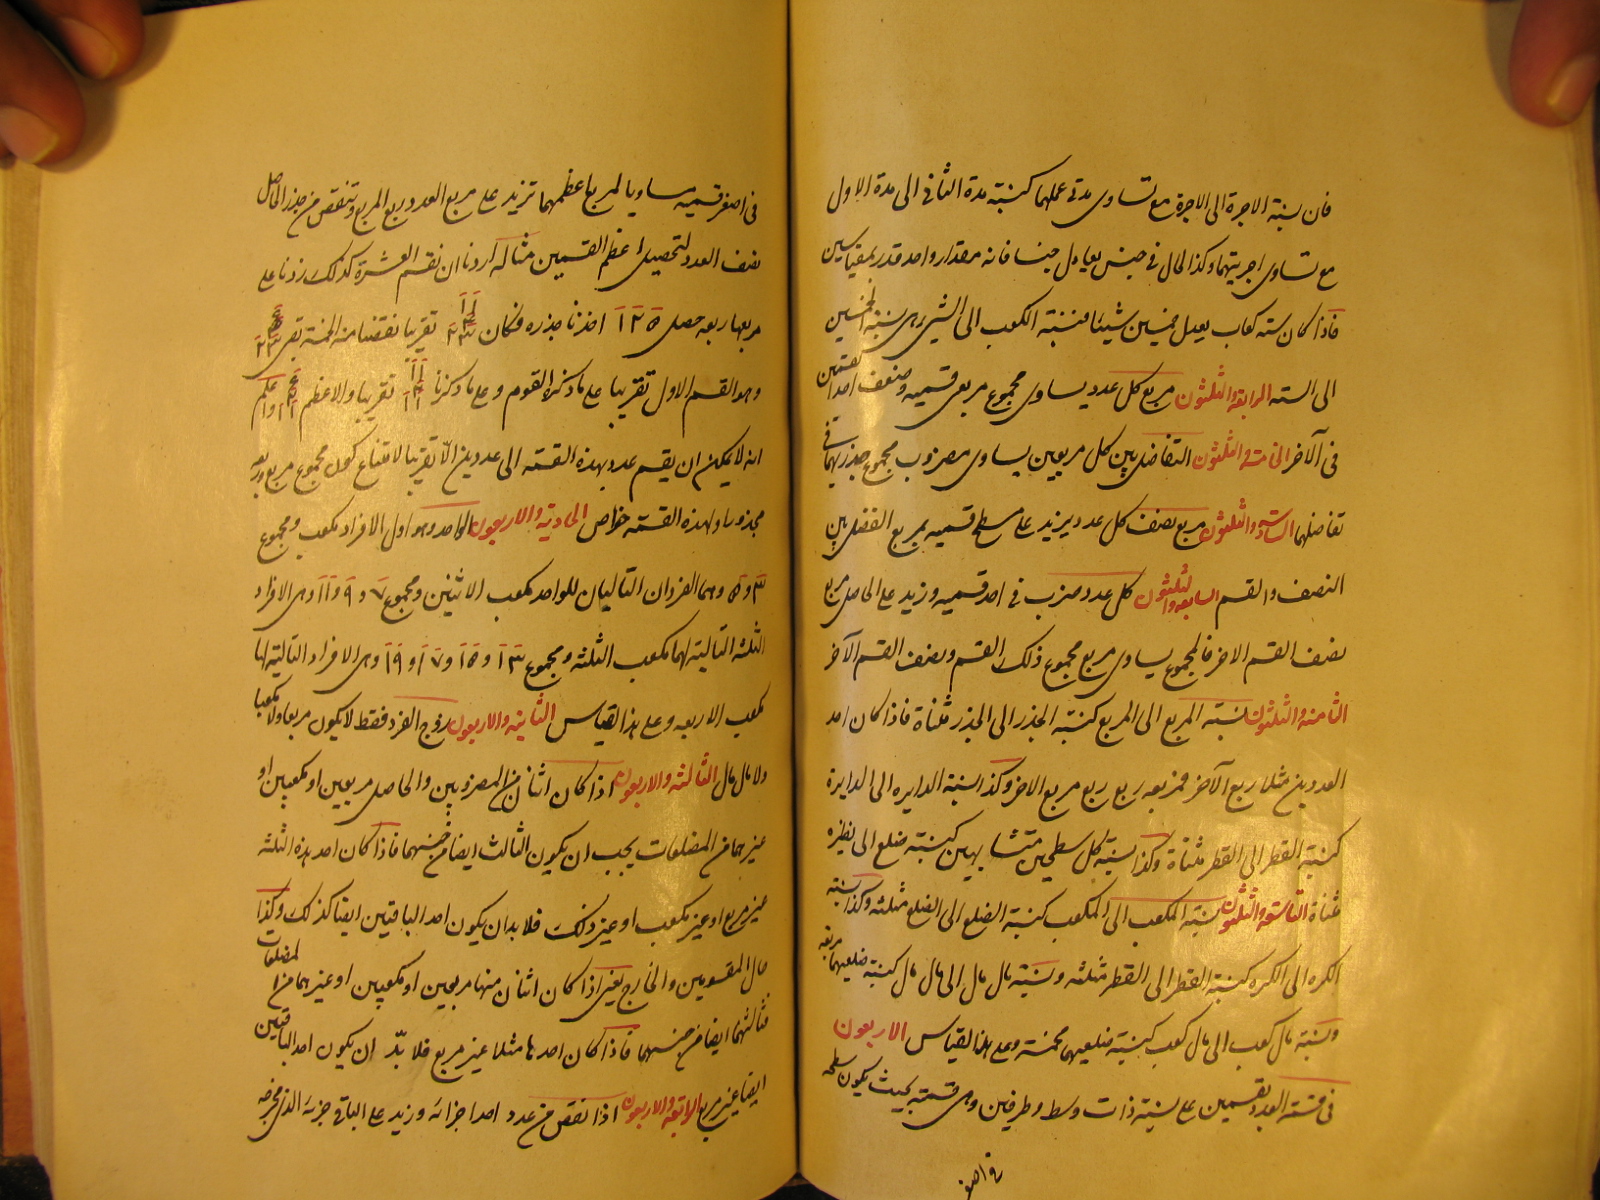 فان نسبة الاجرة الى الاجرة مع تساوى مدتى عملهما كنسبة مدة الثانى الى مدة الاول
مع تساوى اجرتيهما وكذا الحال فى جنس يعادل جنسا فانه مقدار واحد قدر بمقياسين
فاذا كان ستة كعاب يعدل خمسين شيئا فنسبة الكعب الى الشئ هى نسبة الخمسين
الى الستة الرابعة والثلثون مربع كل عدد يساوى مجموع مربعى قسميه وضعف احد القسمين
فى الآخر الخامسة والثلثون التفاضل بين كل مربعين يساوى مضروب مجموع جذريهما فى
تفاضلهما السادسة والثلثون مربع نصف كل عدد يزيد على مسطح قسميه بمربع الفضل بين
النصف والقسم السابعة والثلثون كل عدد ضرب فى احد قسميه وزيد على الحاصل مربع
نصف القسم الاخر فالمجموع يساوى مربع مجموع ذلك القسم ونصف القسم الآخر
الثامنة والثلثون نسبة المربع الى المربع كنسبة الجذر الى الجذر مثناة فاذا كان احد
العددين مثلا ربع الآخر فمربعه ربع ربع مربع الاخر وكذا نسبة الدايرة الى الدايرة
كنسبة القطر الى القطر مثناة وكذا نسبة كل سطحين متشابهين كنسبة ضلع الى نظيره
مثناة التاسعة والثلثون نسبة المكعب الى المكعب كنسبة الضلع الى الضلع مثلثه وكذا نسبة
الكره الى الكره كنسبة القطر الى القطر مثلثه ونسبة مال مال الى مال مال كنسبة ضلعيهما مربعة
ونسبة مال كعب الى مال كعب كنسبة ضلعيهما مخمسة وعلى هذا القياس الاربعون
فى قسمة العدد بقسمين على نسبة ذات وسط وطرفين وهى قسمته بحيث يكون سطحه
فى اصغر
فى اصغر قسميه مساويا لمربع اعظمهما تزيد على مربع العدد ربع المربع وتنقص من جذر الحاصل
نصف العدد لتحصيل اعظم القسمين مثاله اردنا ان نقسم العشرة كذلك زدنا على
مربعها ربعه حصل ١٢٥ اخذنا جذره فكان تقريبا نقصنا منه الخمسة بقى
وهو القسم الاول تقريبا على ما ذكره القوم وعلى ما ذكرنا تقريبا والاعظم واعلم
انه لا يمكن ان يقسم عدد بهذه القسمة الى عددين الّا تقريبا لامتناع كون مجموع مربع وربعه
مجذورا ولهذه القسمة خواص الحادية والاربعون الواحد وهو اول الافراد مكعب ومجموع
٣ و ٥ وهما الفردان التاليان للواحد مكعب الاثنين ومجموع ٧ و ٩ و ١١ وهى الافراد
الثلثة التالية لهما مكعب الثلثة ومجموع ١٣ و ١٥ و ١٧ و ١٩ وهى الافراد التالية لها
مكعب الاربعة وعلى هذا القياس الثانية والاربعون زوج الفرد فقط لا يكون مربعا ولا مكعبا
ولا مال مال الثالثة والاربعون اذا كان اثنان من المضروبين والحاصل مربعين او مكعبين او
غيرهما من المضلعات يجب ان يكون الثالث ايضا من جنسهما فاذا كان احد هذه الثلثة
غير مربع او غير مكعب او غير ذلك فلا بد ان يكون احد الباقيين ايضا كذلك وكذا
حال المقسومين والخارج يعنى اذا كان اثنان منها مربعين او مكعبين او غيرهما من المضلعات
فثالثهما ايضا من جنسهما فاذا كان احدها مثلا غير مربع فلا بدّ ان يكون احد الباقيين
ايضا غير مربع الرابعة والاربعون اذا نقص من عدد احد اجزائه وزيد على الباقى جزئه الذى مخرجه